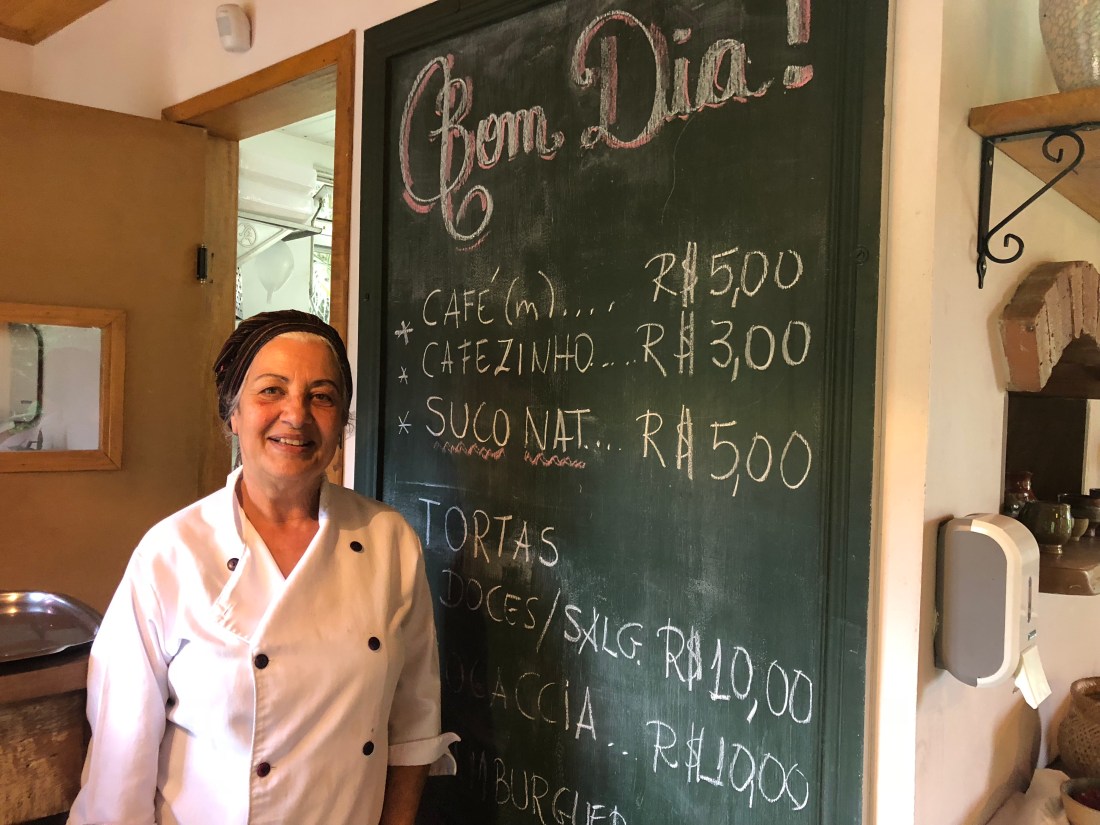 Bom Dia!
* CAFÉ (m).... R$ 5,00
* CAFEZINHO.... R$ 3,00
* SUCO NAT... R$ 5,00
TORTAS
DOCES/SALG. R$ 10,00
OGACCIA... R$ 10,00
MBURGUER